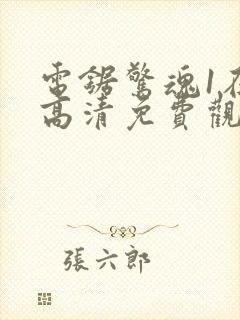 電鋸驚魂1在
高清免費觀
張六郎